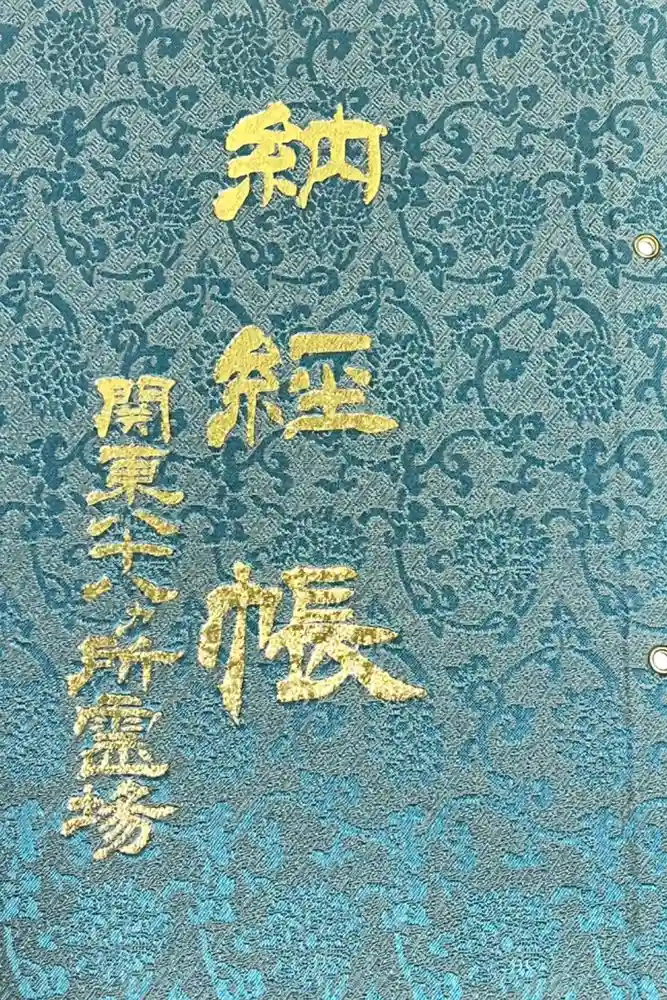 納経帳
関東八十八ヵ所霊場